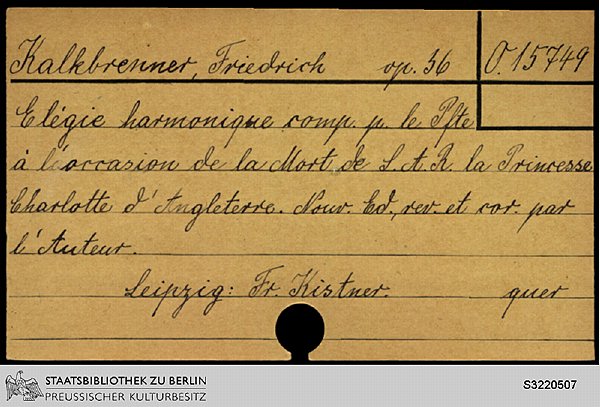 Kalkbrenner, Friedrich op. 36 O. 15749
Elégie harmonique comp. p. le Pfte
à l'occasion de la Mort de S. A. R. la Princesse
Charlotte d'Angleterre. Nouv. Ed., rev. et cor. par
l'Auteur.
Leipzig: Fr. Kistner. quer
STAATSBIBLIOTHEK ZU BERLIN
PREUSSISCHER KULTURBESITZ
S3220507